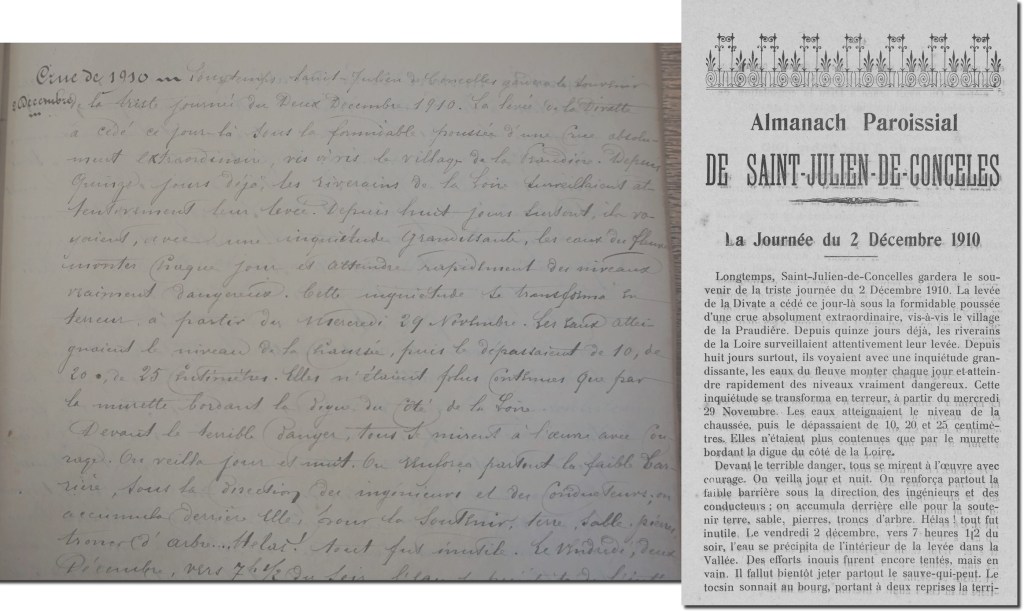 Crue de 1910 Longtemps, Saint-Julien de Concelles gardera le souvenir
2 décembre, la triste journée du Deux Décembre 1910. La levée de la Divatte
a cédé ce jour-là sous la formidable poussée d'une crue absolu-
ment extraordinaire, vis à vis le village de la Praudière. Depuis
Quinze jours déjà, les riverains de la Loire surveillaient at-
tentivement leur levée. Depuis huit jours surtout, ils vo-
yaient, avec une inquiétude grandissante, les eaux du fleuve
monter chaque jour et atteindre rapidement des niveaux
vraiment dangereux. Cette inquiétude se transforma en
terreur à partir du Mercredi 29 Novembre. Les eaux attei-
gnaient le niveau de la chaussée, puis le dépassaient de 10, de
20, de 25 centimètres. Elles n'étaient plus contenues que par
la murette bordant la digue du côté de la Loire.
Devant le terrible danger, tous se mirent à l'œuvre avec cou-
rage. On veilla jour et nuit. On renforça partout la faible bar-
rière, sous la direction des ingénieurs et des conducteurs; on
accumula derrière elle, pour la soutenir, terre, sable, pierres,
troncs d'arbre... Hélas! tout fut inutile. Le Vendredi, deux
Décembre, vers 7h 1/2 du soir, l'eau
Almanach Paroissial
DE SAINT-JULIEN-DE-CONCELES
La Journée du 2 Décembre 1910
Longtemps, Saint-Julien-de-Concelles gardera le sou-
venir de la triste journée du 2 Décembre 1910. La levée
de la Divate a cédé ce jour-là sous la formidable poussée
d'une crue absolument extraordinaire, vis-à-vis le village
de la Praudière. Depuis quinze jours déjà, les riverains
de la Loire surveillaient attentivement leur levée. Depuis
huit jours surtout, ils voyaient avec une inquiétude gran-
dissante, les eaux du fleuve monter chaque jour et attein-
dre rapidement des niveaux vraiment dangereux. Cette
inquiétude se transforma en terreur, à partir du mercredi
29 Novembre. Les eaux atteignaient le niveau de la
chaussée, puis le dépassaient de 10, 20 et 25 centimè-
tres. Elles n'étaient plus contenues que par le murette
bordant la digue du côté de la Loire.
Devant le terrible danger, tous se mirent à l'œuvre avec
courage. On veilla jour et nuit. On renforça partout la
faible barrière sous la direction des ingénieurs et des
conducteurs ; on accumula derrière elle pour la soute-
nir terre, sable, pierres, troncs d'arbre. Hélas ! tout fut
inutile. Le vendredi 2 décembre, vers 7 heures 1|2 du
soir, l'eau se précipita de l'intérieur de la levée dans la
Vallée. Des efforts inouis furent encore tentés, mais en
vain. Il fallut bientôt jeter partout le sauve-qui-peut. Le
tocsin sonnait au bourg, portant à deux reprises la terri-